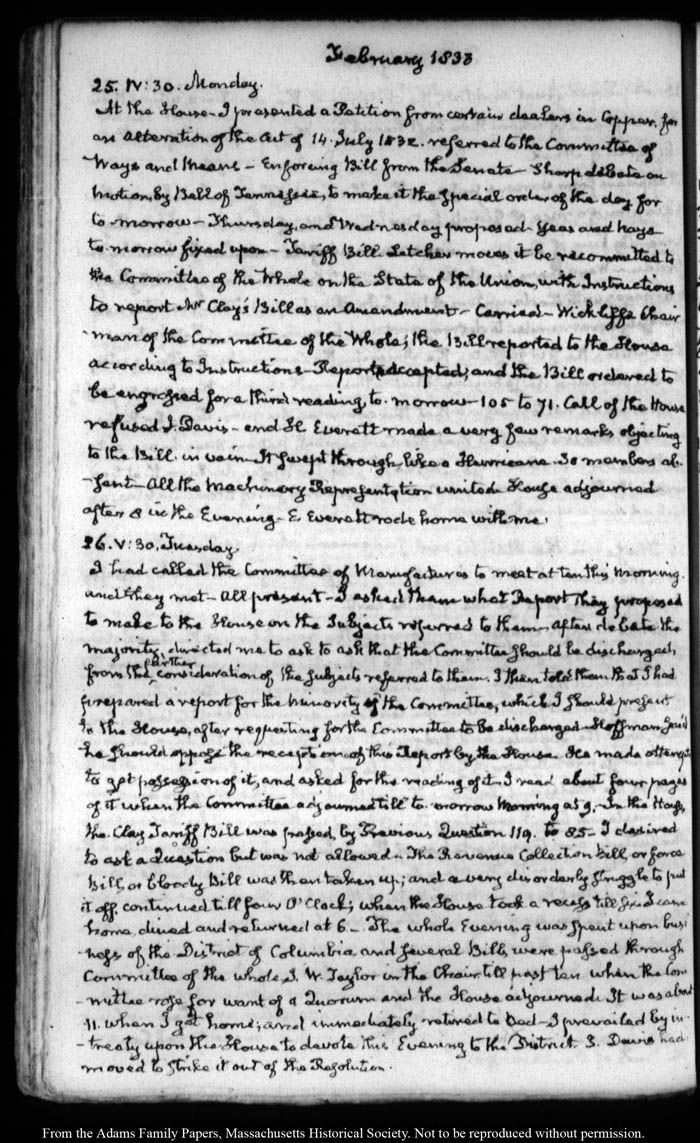 February 1833
25. IV:30. Monday.
At the House I presented a Petition from certain dealers in Copper, for
an alteration of the Act of 14. July 1832. referred to the Committee of
Ways and Means – Enforcing Bill from the Senate – Sharp debate on
motion, by Bell of Tennessee, to make it the special order of the day for
to-morrow – Thursday, and Wednesday proposed. Yeas and nays
to-morrow fixed upon – Tariff Bill Letcher moves it be recommitted to
the Committee of the Whole on the State of the Union, with Instructions
to report Mr Clay's Bill as an Amendment – Carried – Wickliffe Chair
-man of the Committee of the Whole; the Bill reported to the House
according to Instructions – Report accepted; and the Bill ordered to
be engrossed for a third reading to-morrow – 105 to 71. Call of the House
refused J. Davis – and H. Everett made a very few remarks objecting
to the Bill. in vain. It swept through, like a Hurricane. 30 members ab-
-sent – All the machinery Representation united. House adjourned
after 8 in the Evening – E. Everett rode home with me.
26. V:30. Tuesday.
I had called the Committee of Manufactures to meet at ten this morning.
and they met – All present – I asked them what Report they proposed
to make to the House on the Subjects referred to them. After debate the
majority, directed me to ask to ask that the Committee should be discharged
from the further consideration of the subjects referred to them. I then told them that I had
prepared a report for the minority of the Committee, which I should present
to the House, after requesting for the Committee to be discharged. Hoffman said
he should oppose the reception of this Report by the House. He made attempts
to get possession of it, and asked for the reading of it. I read about four pages
of it when the Committee adjourned till to-morrow Morning at 9. In the House,
the Clay Tariff Bill was passed, by Previous Question 119. to 85 – I desired
to ask a Question but was not allowed – The Revenue Collection bill, or force
bill, or bloody Bill was then taken up; and a very disorderly struggle to put
it off. continued till four O'Clock; when the House took a recess till six. I came
home, dined and returned at 6 – The whole Evening was spent upon busi
-ness of the District of Columbia and several Bills were passed through
Committee of the whole J. W. Taylor in the Chair till past ten when the Com
-mittee rose for want of a Quorum and the House adjourned. It was about
11. when I got home; and immediately retired to bed – I prevailed by in-
-treaty upon the House to devote this Evening to the District. J. Davis had
moved to strike it out of the Resolution.
From the Adams Family Papers, Massachusetts Historical Society. Not to be reproduced without permission.